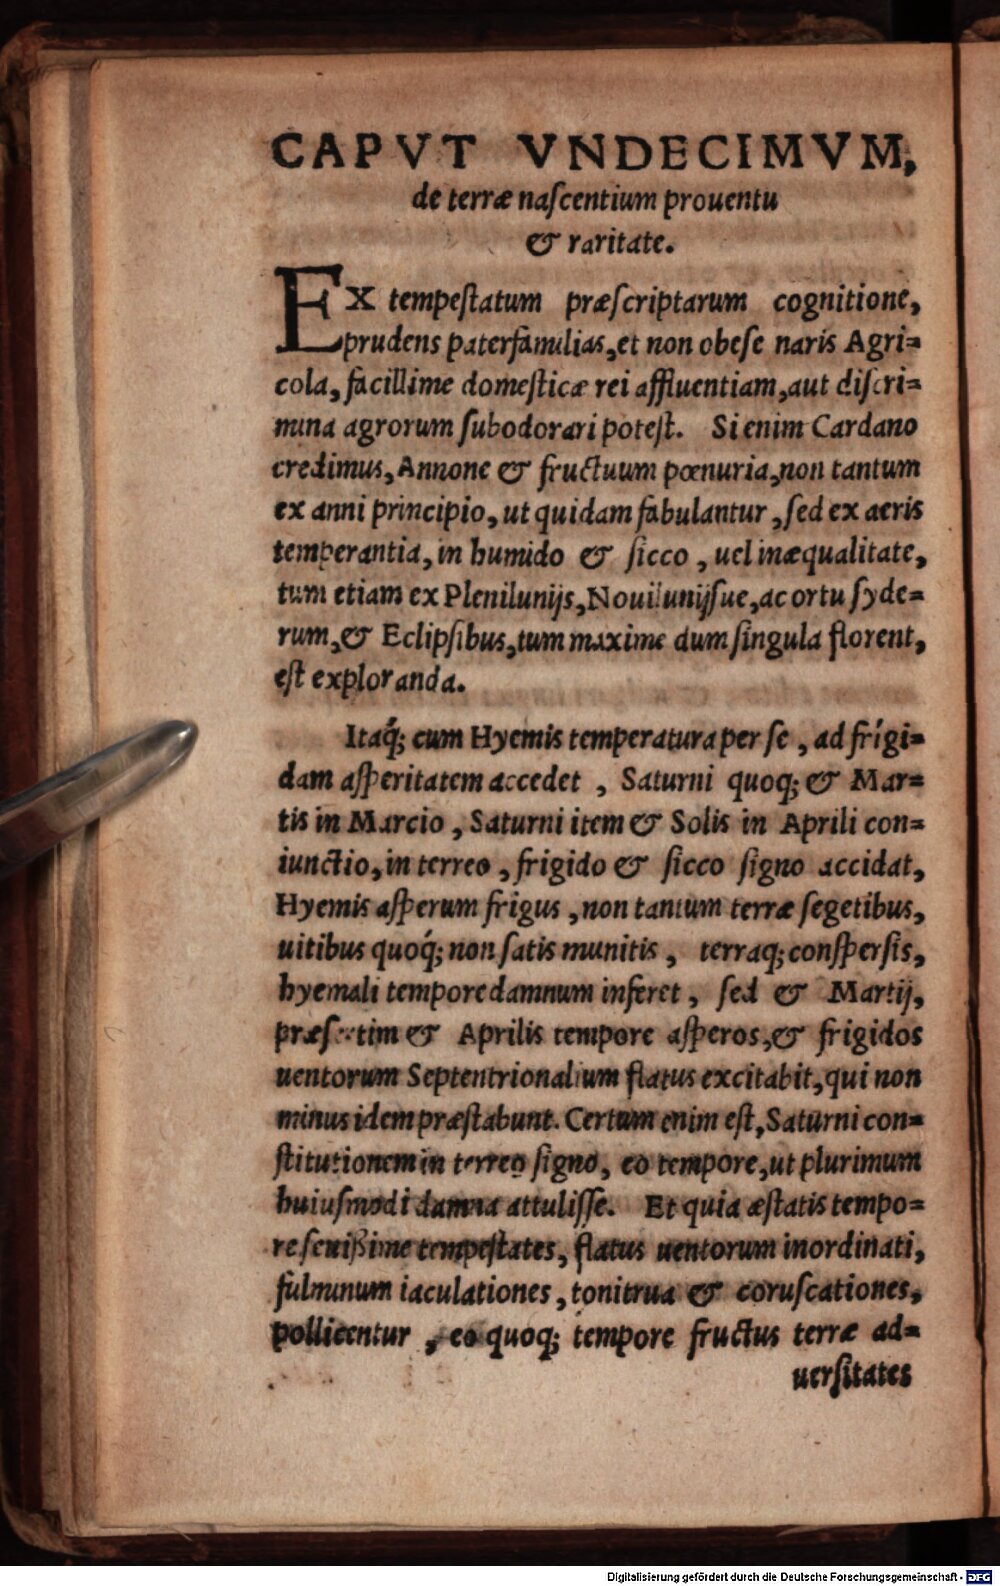 CAPVT VNDECIMVM,
de terræ naſcentium prouentu
& raritate.
EX tempeſtatum præſcriptarum cognitione,
prudens paterfamilias, et non obeſe naris Agri=
cola, facillime domeſticæ rei affluentiam, aut diſcri=
mina agrorum ſubodorari poteſt. Si enim Cardano
credimus, Annone & fructuum pœnuria, non tantum
ex anni principio, ut quidam fabulantur, ſed ex aeris
temperantia, in humido & ſicco, uel inæqualitate,
tum etiam ex Plenilunijs, Nouilunijſue, ac ortu ſyde=
rum, & Eclipſibus, tum maxime dum ſingula florent,
eſt exploranda.
Itaq́; cum Hyemis temperatura per ſe, ad frígi=
dam aſperitatem accedet, Saturni quoq; & Mar=
tis in Marcio, Saturni item & Solis in Aprili con=
iunctio, in terreo, frigido & ſicco ſigno accidat,
Hyemis aſperum frigus, non tantum terræ ſegetibus,
uitibus quoq́; non ſatis munitis, terraq; conſperſis,
hyemali tempore damnum inferet, ſed & Martij,
præſertim & Aprilis tempore aſperos, & frigidos
uentorum Septentrionalium flatus excitabit, qui non
minus idem præſtabunt. Certum enim eſt, Saturni con=
ſtitutionem in terreo ſigno, eo tempore, ut plurimum
huiuſmodi damna attuliſſe. Et quia æſtatis tempo=
re ſeuißime tempeſtates, flatus uentorum inordinati,
fulminum iaculationes, tonitrua & coruſcationes,
pollicentur, eo quoq; tempore fructus terræ ad=
uerſitates
Digitalisierung gefördert durch die Deutsche Forschungsgemeinschaft - DFG